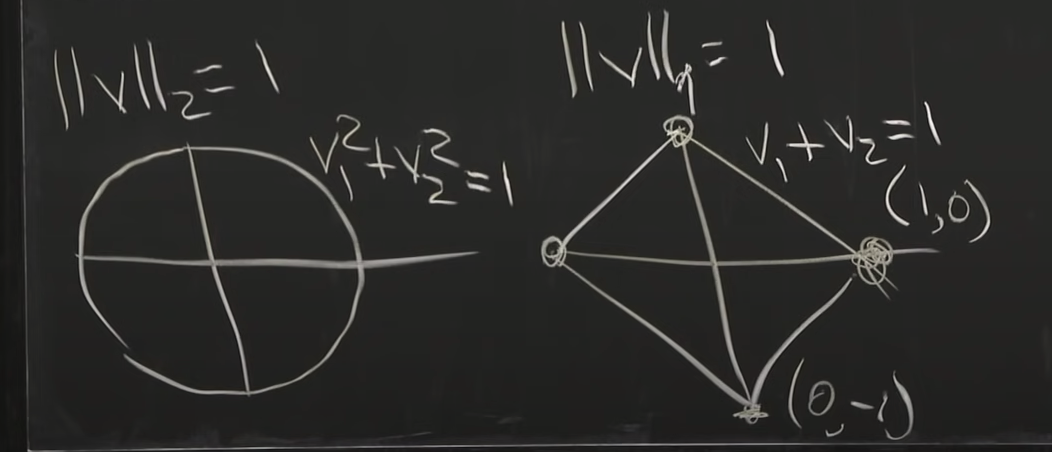 ||v||₂ = 1
v₁² + v₂² = 1
||v||₁ = 1
v₁ + v₂ = 1
(1,0)
(0,-1)